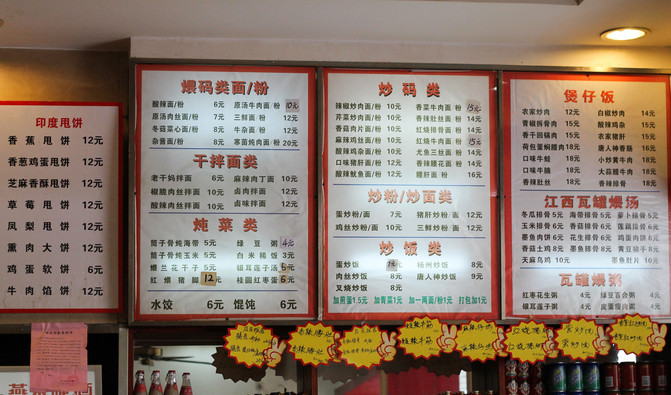 印度甩饼
香蕉甩饼 12元
香葱鸡蛋甩饼 12元
芝麻香酥甩饼 12元
草莓甩饼 12元
凤梨甩饼 12元
熏肉大饼 12元
鸡蛋软饼 6元
牛肉馅饼 12元
煨码类面/粉
酸辣面/粉 6元 原汤牛肉面/粉 10元
原汤肉丝面/粉 7元 三鲜面/粉 12元
冬菇菜心面/粉 8元 牛杂面/粉 12元
杂酱面/粉 8元 寒菌炖肉面/粉 20元
干拌面类
老干妈拌面 6元 麻辣肉丁面 10元
椒脆肉丝拌面 10元 卤肉拌面 12元
酸辣肉丝拌面 10元 卤味拌面 12元
炖菜类
筒子骨炖海带 5元 绿豆粥 4元
筒子骨炖玉米 5元 白米稀粥 3元
蟠兰花干子 5元 银耳莲子汤 6元
红煨猪脚 12元 桂圆红枣蛋 6元
水饺 6元 馄饨 6元
炒码类
辣椒炒肉面/粉 10元 香菜牛肉面/粉 15元
芹菜炒肉面/粉 10元 香辣肚丝面/粉 14元
香菇肉片面/粉 10元 红烧排骨面/粉 14元
麻辣鸡丝面/粉 10元 红烧牛肉面/粉 15元
酸辣鸡杂面/粉 10元 大鱼三鲜面/粉 14元
口味猪肝面/粉 12元 香辣腰花面/粉 14元
酸辣鱿鱼面/粉 12元 腰肝面/粉 16元
炒粉/炒面类
蛋炒粉/面 7元 猪肝炒粉/面 12元
鸡丝炒粉/面 10元 三鲜炒粉/面 12元
炒饭类
蛋炒饭 扬州炒饭 8元
肉丝炒饭 8元 唐人神炒饭 9元
叉烧炒饭 8元
加煎蛋1.5元 加青菜1元 加一两面/粉1元 打包加1元
煲仔饭
农家炒肉 12元 白椒炒肉 14元
青椒拆骨肉 15元 酸辣鸡杂 15元
香干回锅肉 15元 农家猪肝 15元
荷包蛋焖腊肉 18元 唐人神香肠 16元
口味牛蛙 18元 小炒黄牛肉 18元
口味牛腩 18元 大蒜腊牛肉 18元
香辣肚丝 18元 香芋排骨 18元
江西瓦罐煨汤
冬瓜排骨 5元 海带排骨 5元 萝卜排骨 5元
玉米排骨 6元 香菇排骨 6元 莲藕排骨 6元
墨鱼肉饼 6元 花生排骨 6元 鸡蛋肉饼 6元
墨鱼排骨 6元 黄豆猪手 8元
天麻乌鸡 10元
瓦罐煨粥
红枣花生粥 4元 绿豆百合粥 4元
银耳莲子粥 4元